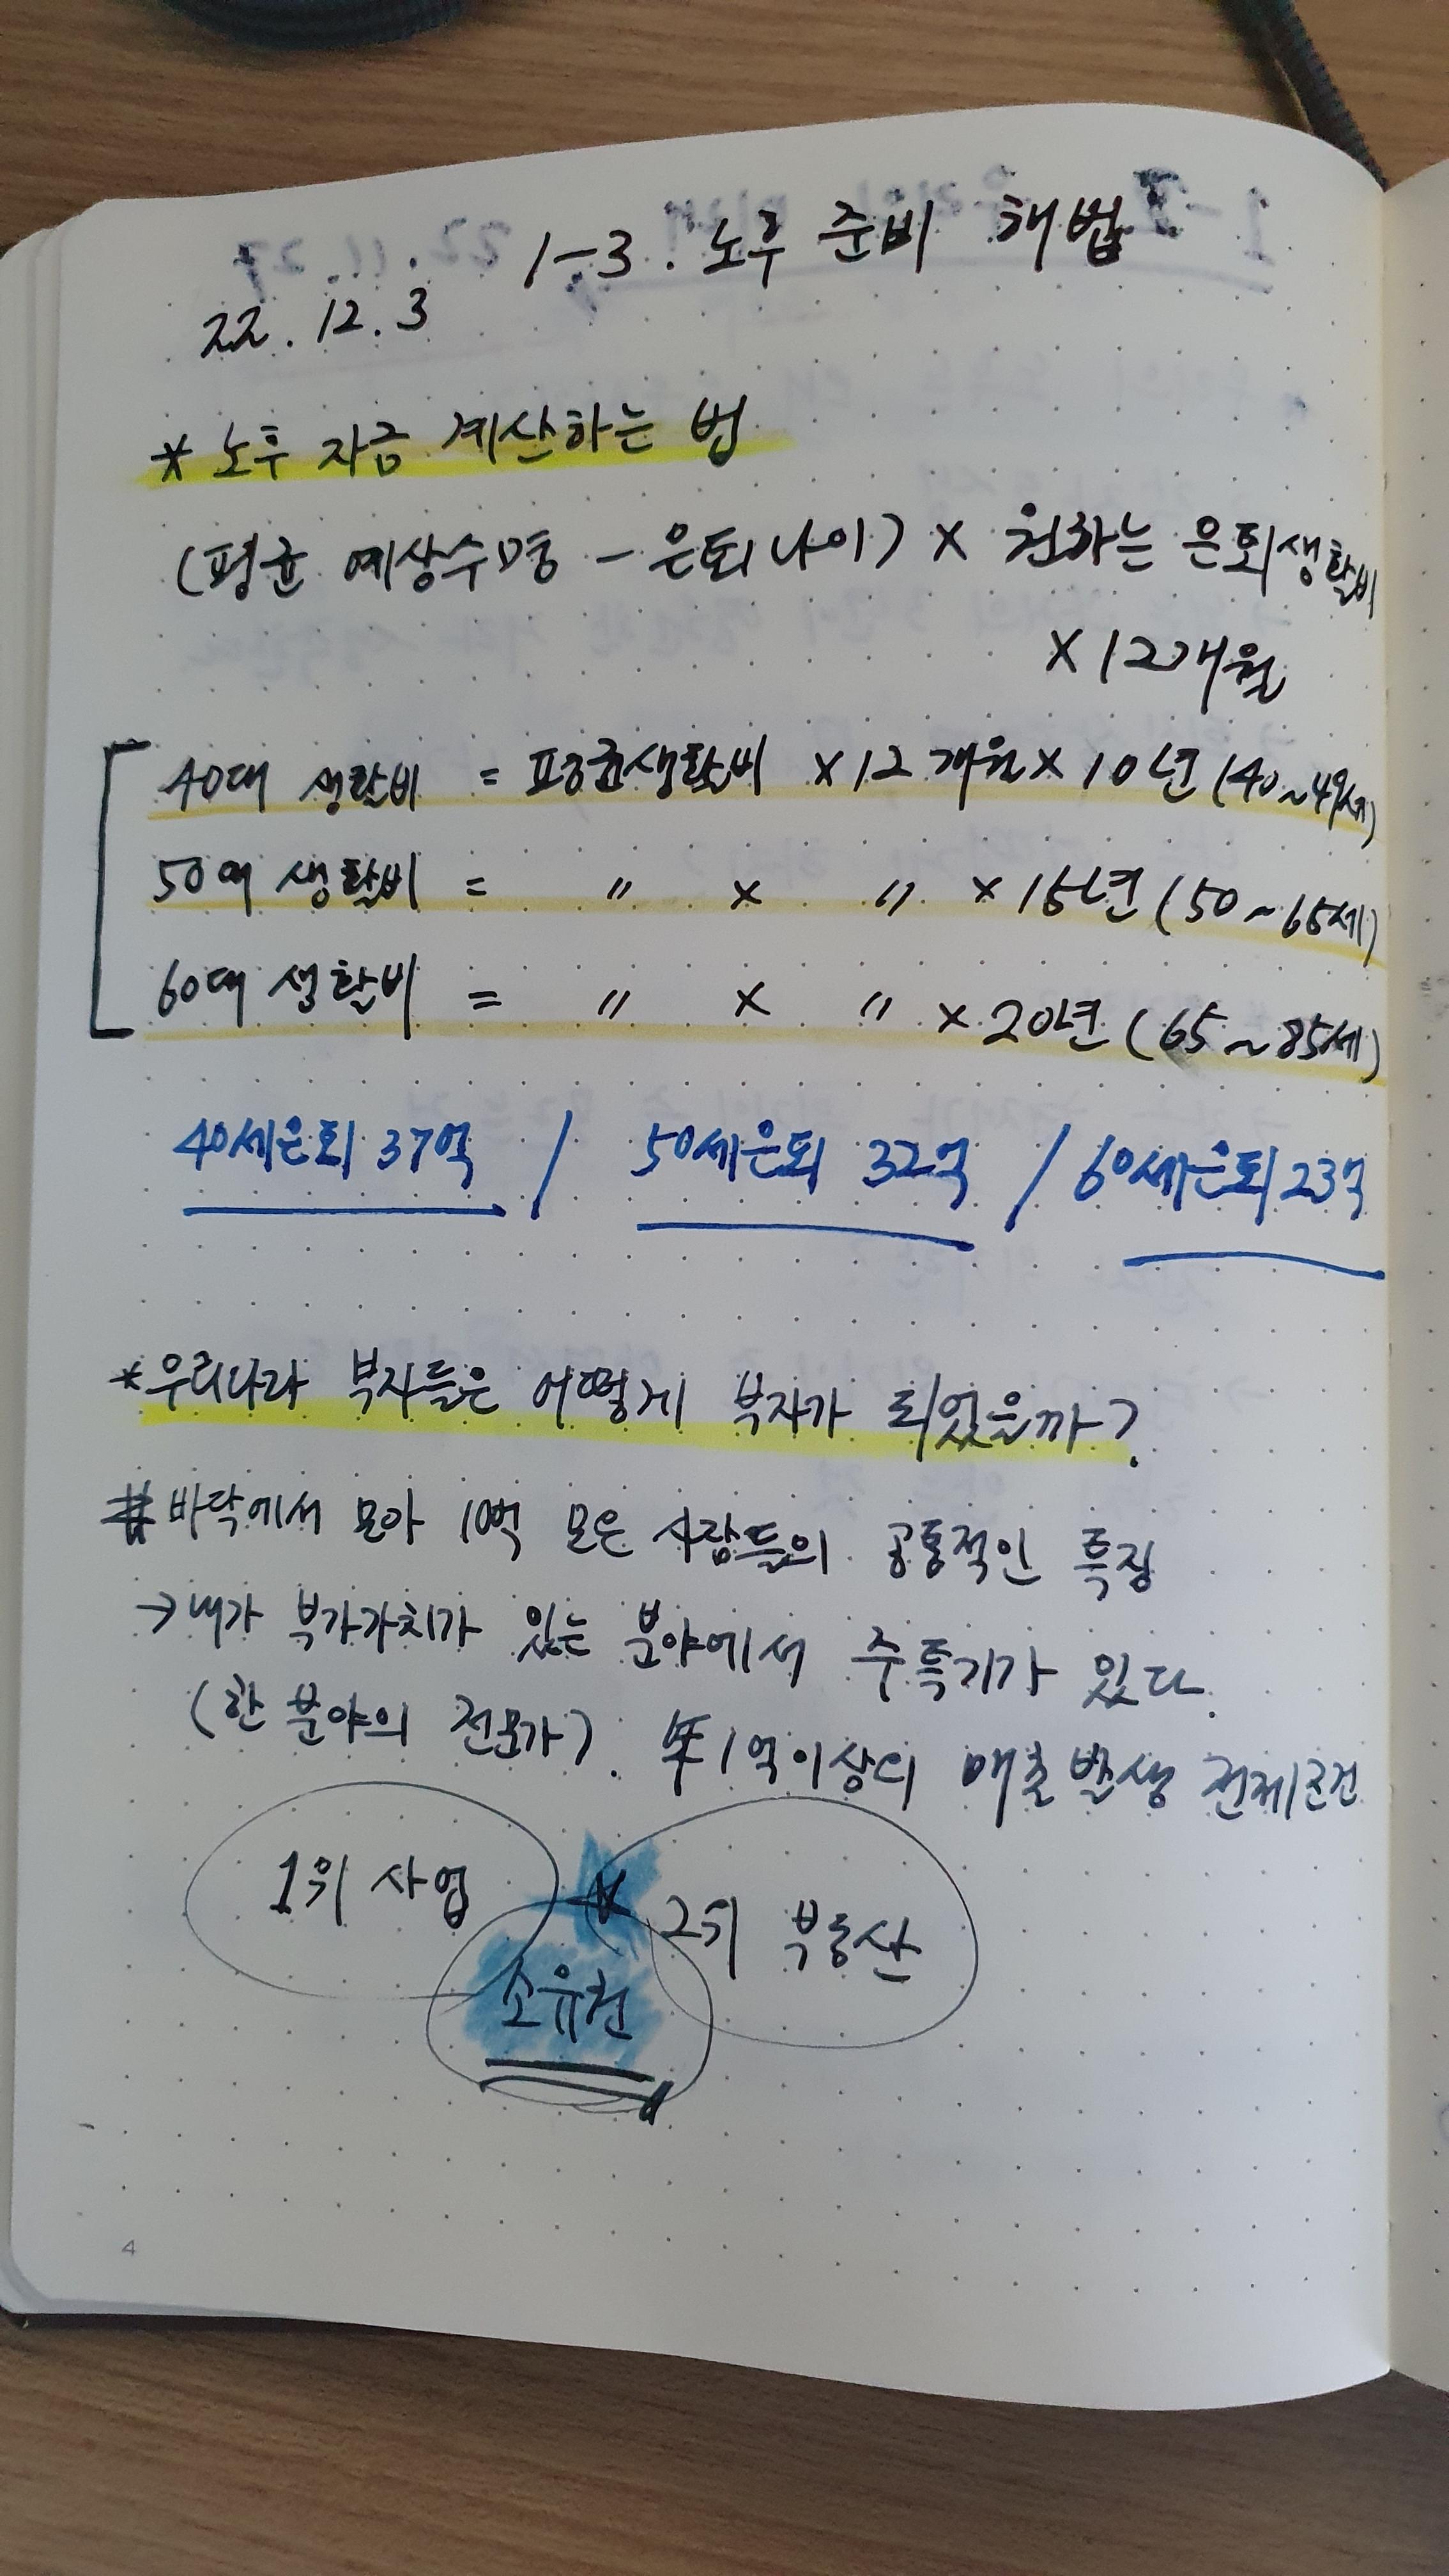 1-3. 노후 준비 해법
22.12.3
* 노후 자금 계산하는 법
(평균 예상수명 - 은퇴나이) × 원하는 은퇴생활비
× 12개월
40대 생활비 = 평균생활비 × 12개월 × 10년 (40~49세)
50대 생활비 = 〃 × 〃 × 15년 (50~65세)
60대 생활비 = 〃 × 〃 × 20년 (65~85세)
40세은퇴 37억 / 50세은퇴 32억 / 60세은퇴 23억
* 우리나라 부자들은 어떻게 부자가 되었을까?
# 바닥에서 모아 10억 모은 사람들의 공통적인 특징
→ 내가 부가가치가 있는 분야에서 주특기가 있다.
(한 분야의 전문가). 年1억이상의 매출발생 전제조건
1위 사업
2위 부동산
소유권
4